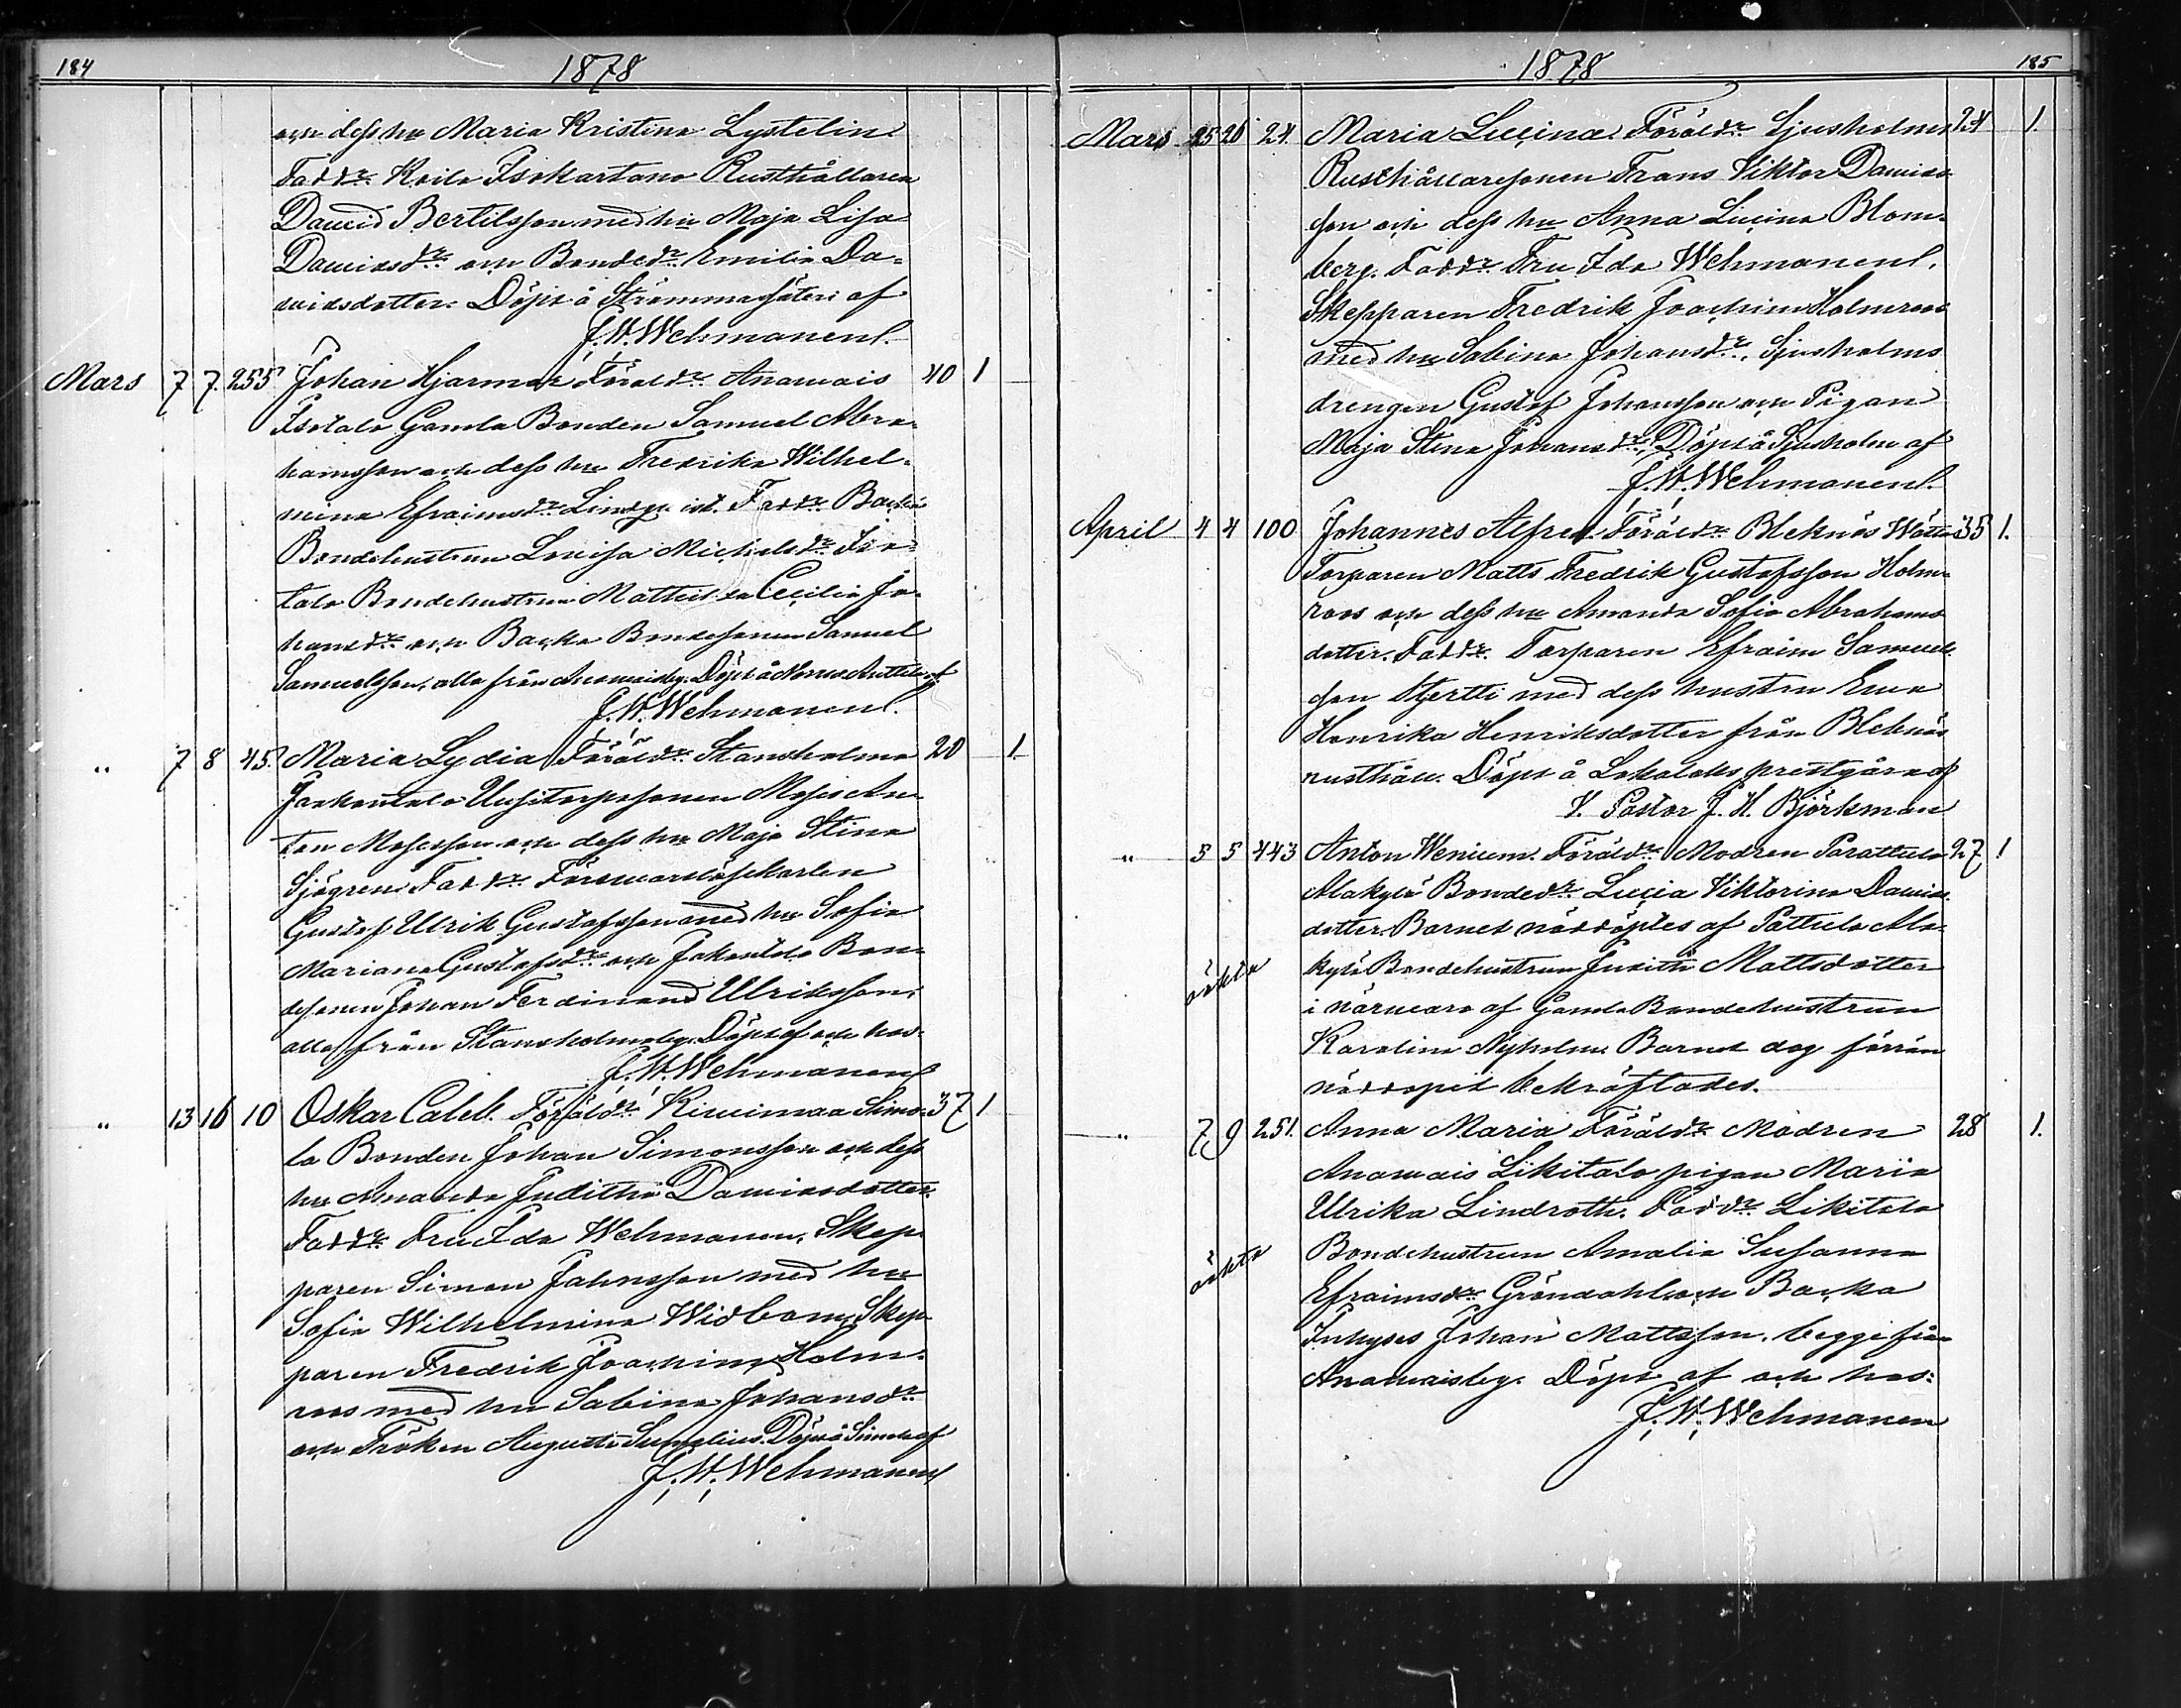 184
1878
och dess hu Maria Kristina Lystelin
Faddr. Koilo Isokartano Rusthållaren
Dawid Bertilsson med hu Maja Lisa
Dawidsdr och Bondedr. Emilia Da-
widsdotter. Döpt å Strömma af
J. W. Wehmanen.
Mars 7 7. 255 Johan Hjarmar Föräldr. Anawais 40 1
Isotalo Gamla Bonden Samuel Abra-
hamsson och dess hu Fredrika Wilhel-
mina Efraimsdr Faddr
Bondehustrun Lovisa Michelsdr Iso-
talo Bondehustrun Mathilda Cecilia Jo-
hansdr och Backa Bondesonen Samuel
Samuelsson, alla från Anawaisby. Döpt å af
J. W. Wehmanen.
" 7 8 45. Maria Lydia Föräldr. Stansholma 20 1.
Mosis An-
ton Mosesson och dess hu Maja Stina
Sjögren. Faddr.
Gustaf Ulrik Gustafsson med hu Sofia
Mariana Gustafsdr och Jakontalo Bon-
desonen Johan Ferdinand Ulriksson,
alla från Stansholmaby. Döpt af och hos:
J. W. Wehmanen
" 13 16 10 Oskar Caleb. Föräldr. Kiwimaa Simo- 37 1
la Bonden Johan Simonsson och dess
hu Amanda Juditha Dawidsdotter.
Faddr. Fru Ida Wehmanen, Skep-
paren Simon Johnsson med hu
Sofia Wilhelmina Widbom, Skep-
paren Fredrik Joachim Holm-
roos med hu Sabina Johansdr
och Fröken Augusta Sumelius. Döpt å Simola af
J. W. Wehmanen
1878
185
Mars 25 26 24. Maria Lucina. Föräldr. Sjusholms 24 1.
Rusthållaresonen Frans Viktor Dawids-
son och dess hu Anna Lucina Blom-
berg. Faddr. Fru Ida Wehmanen,
Skepparen Fredrik Joachim Holmroos
med hu Sabina Johansdr, Sjusholms
drengen Gustaf Johansson och Pigan
Maja Stina Johansdr. Döpt å Sjusholm af
J. W. Wehmanen.
April 4 4 100 Johannes Alfred. Föräldr. Bleknäs 35 1.
Torparen Matts Fredrik Gustafsson Holm-
roos och dess hu Amanda Sofia Abrahams-
dotter. Faddr. Torparen Efraim Samuels-
son Hertti med dess hustru Ewa
Henrika Henriksdotter från Bleknäs
rusthåll. Döpt å Lokalaks prestgård af
V. Pastor J. H. Björkman
" 5 5 443 Anton Wenicem. Föräldr. Modren Parattula 27 1
Alakylä Bondedr. Lucia Viktorina Dawids-
dotter. Barnet nöddöptes af Pattula Ala-
oäkta kylä Bondehustrun Judith Mattsdotter
i närwaro af Gamla Bondehustrun
Karolina Nyholm. Barnet dog förrän
nöddopet bekräftades.
" 7 9 251. Anna Maria Föräldr. Modren 28 1.
Anawais Likitalo pigan Maria
Ulrika Lindroth. Faddr. Likitalo
oäkta Bondehustrun Amalia Susanna
Efraimsdr Gröndahl och Backa
Inhyses Johan Mattsson, begge från
Anawaisby. Döpt af och hos:
J. W. Wehmanen